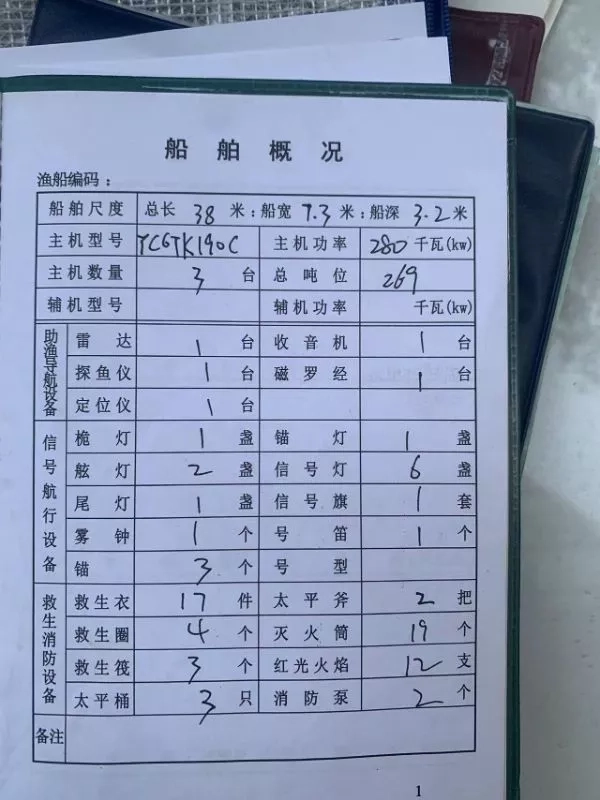 船舶概况
渔船编码：
船舶尺度 总长 38 米：船宽 7.3 米：船深 3.2 米
主机型号 YC6TK190C 主机功率 280 千瓦(kw)
主机数量 3 台 总吨位 269
辅机型号 辅机功率 千瓦(kw)
助渔导航设备
雷达 1 台 收音机 1 台
探鱼仪 1 台 磁罗经 1 台
定位仪 1 台
信号航行设备
桅灯 1 盏 锚灯 1 盏
舷灯 2 盏 信号灯 6 盏
尾灯 1 盏 信号旗 1 套
雾钟 1 个 号笛 1 个
锚 3 个 号型
救生消防设备
救生衣 17 件 太平斧 2 把
救生圈 4 个 灭火筒 19 个
救生筏 3 个 红光火焰 12 支
太平桶 3 只 消防泵 2 个
备注
1